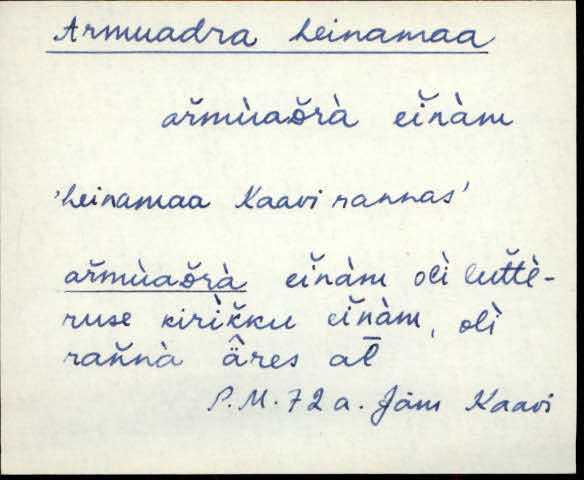 Armuadra heinamaa
ar̆mùaδ̆rà eĭnàm
'heinamaa Kaavi rannas'
ar̆mùaδ̆rà eĭnàm olì lut̆tè-
ruse kirìk̆ku eĭnàm, olì
ran̆nà äres at̄
P.M. 72 a. Jäm Kaavi